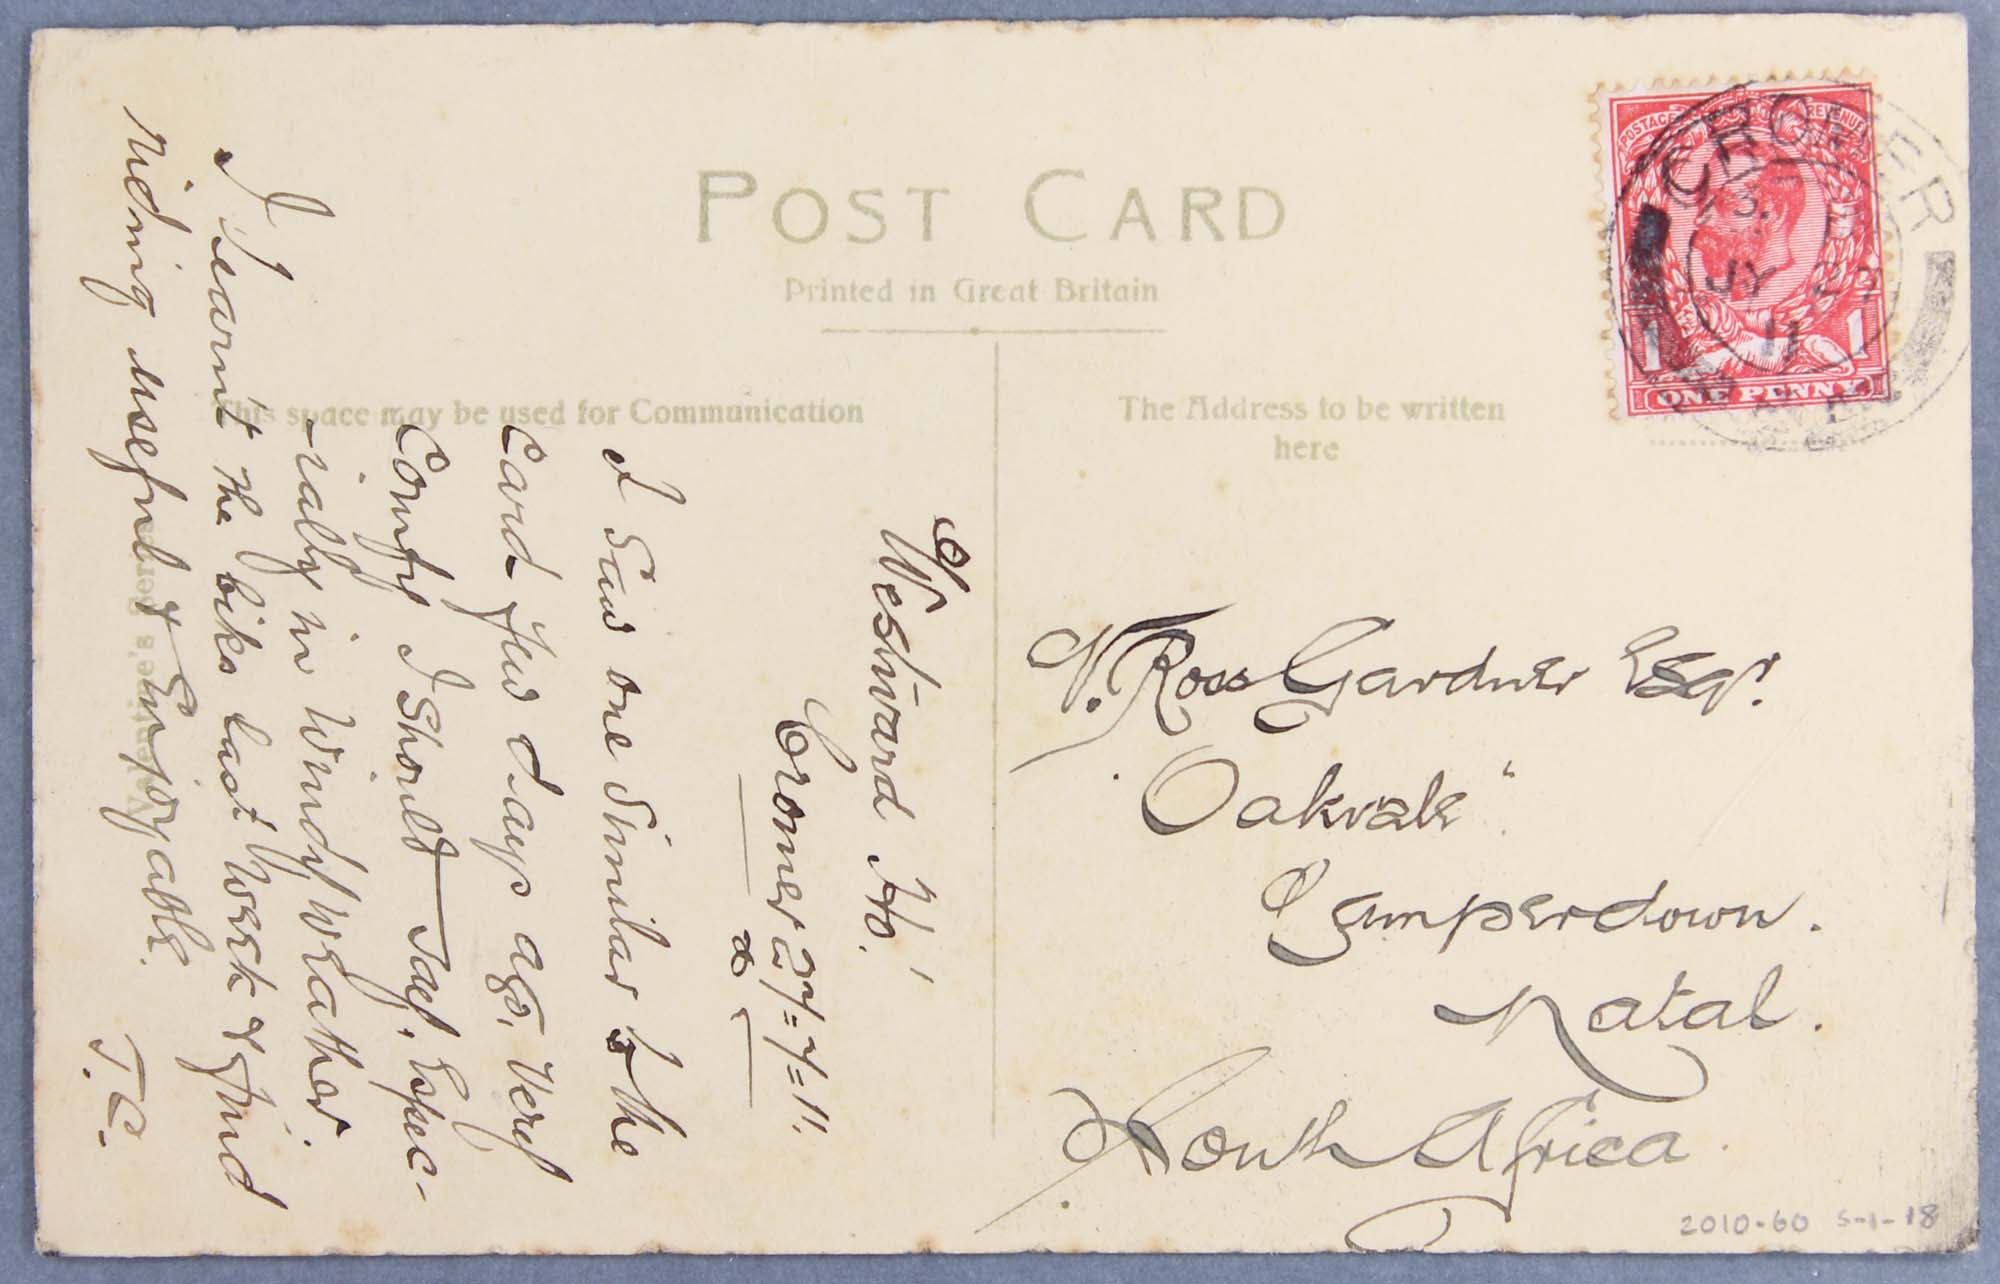 POST CARD
Printed in Great Britain
This space may be used for Communication
The Address to be written
here
POSTAGE REVENUE
1 1
ONE PENNY
CROMER
JY 27
11
"Westward Ho'
Cromer 27=7=11.
I saw one similar to the
card few days ago. Very
Comfy I should Say, Espec-
-ially in Windy Weather.
I learnt the bike last week & find
riding useful & Enjoyable.
T.C.
N. Ross Gardner Esqr.
"Oakvale"
Camperdown.
Natal.
South Africa
Valentine's Series
2010-60 5-1-18